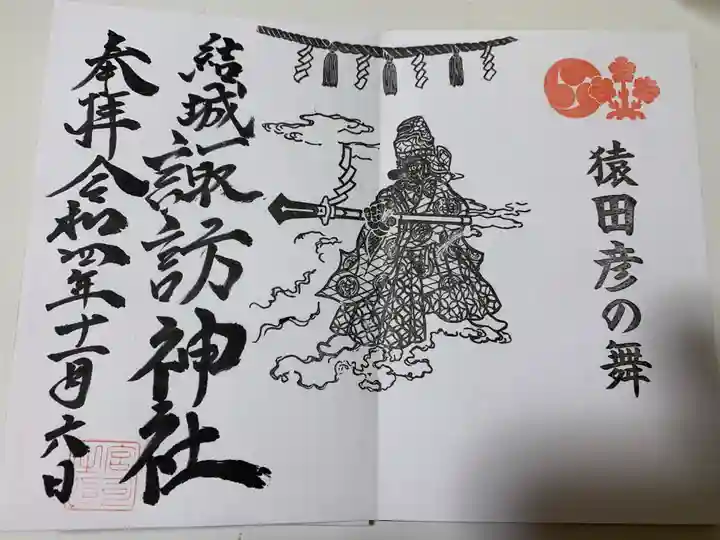 猿田彦の舞
結城諏訪神社
奉拝 令和四年十一月六日